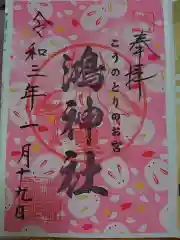 奉拝
こうのとりのお宮
鴻神社
令和三年一月十九日